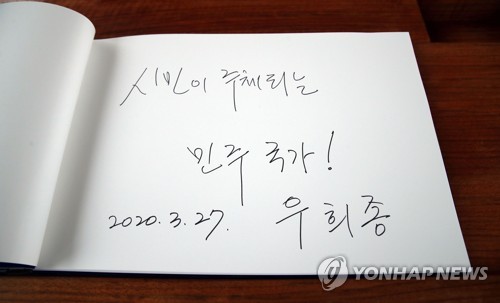 시민이 주체되는
민주 국가!
2020.3.27. 우희종
YONHAP NEWS